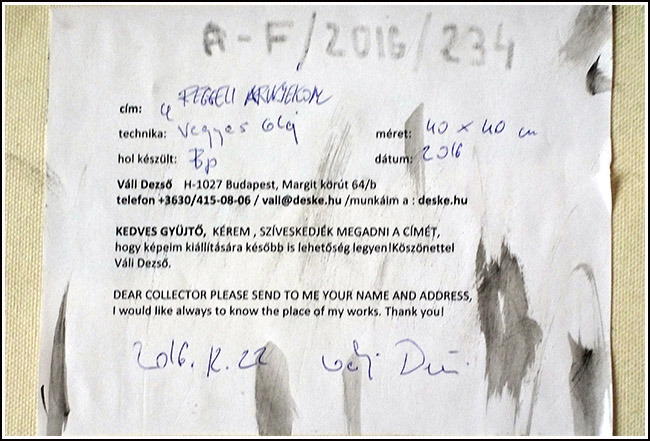 A-F/2016/234
cím: REGGELI ÁRNYÉKOK
technika: vegyes olaj méret: 40 x 40 cm
hol készült: Bp dátum: 2016
Váli Dezső H-1027 Budapest, Margit körút 64/b
telefon +3630/415-08-06 / vali@deske.hu /munkáim a : deske.hu
KEDVES GYŰJTŐ, KÉREM , SZÍVESKEDJÉK MEGADNI A CÍMÉT,
hogy képeim kiállítására később is lehetőség legyen!Köszönettel
Váli Dezső.
DEAR COLLECTOR PLEASE SEND TO ME YOUR NAME AND ADDRESS,
I would like always to know the place of my works. Thank you!
2016. 22 Váli